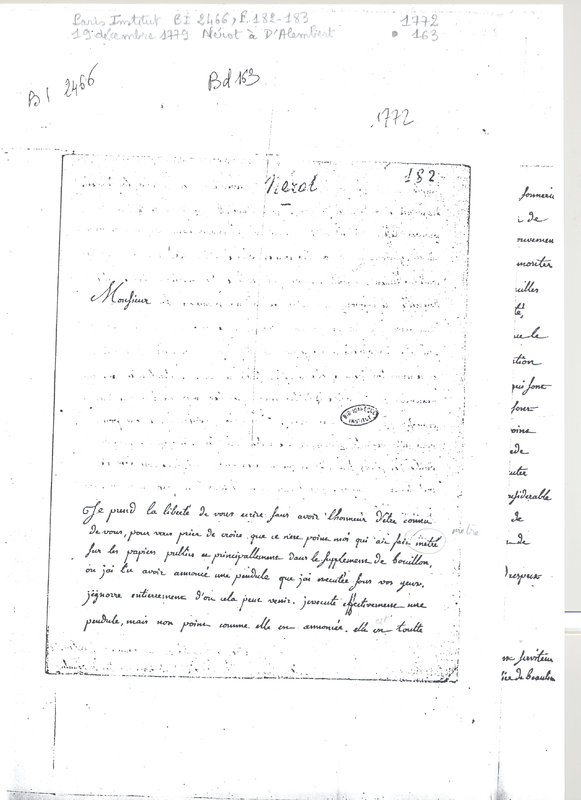 Paris Institut BI 2466, f. 182-183
1772
19 décembre 1779 Nérot à D'Alembert
• 163
BI 2466
Bd 163
1772
Nérot
182
Monsieur
BIBLIOTHEQUE
INSTITUT
Je prend la liberte de vous ecrire sans avoir l'honneur d'etre connu
de vous, pour vous prier de croire que ce n'est point moi qui ait fait metré
metre
sur les papiers publics et principallement dans le supplement de bouillon,
ou j'ai lu avoir annoncé une pendule que j'ai executée sous vos yeux,
j'ignorre entierrement d'ou cela peut venir. j'execute effectivement une
pendule, mais non point comme elle est annoncée. elle est toutte
sonnerie
de
mouvement
monter
té,
que le
qui sont
de
de
respect
serviteur